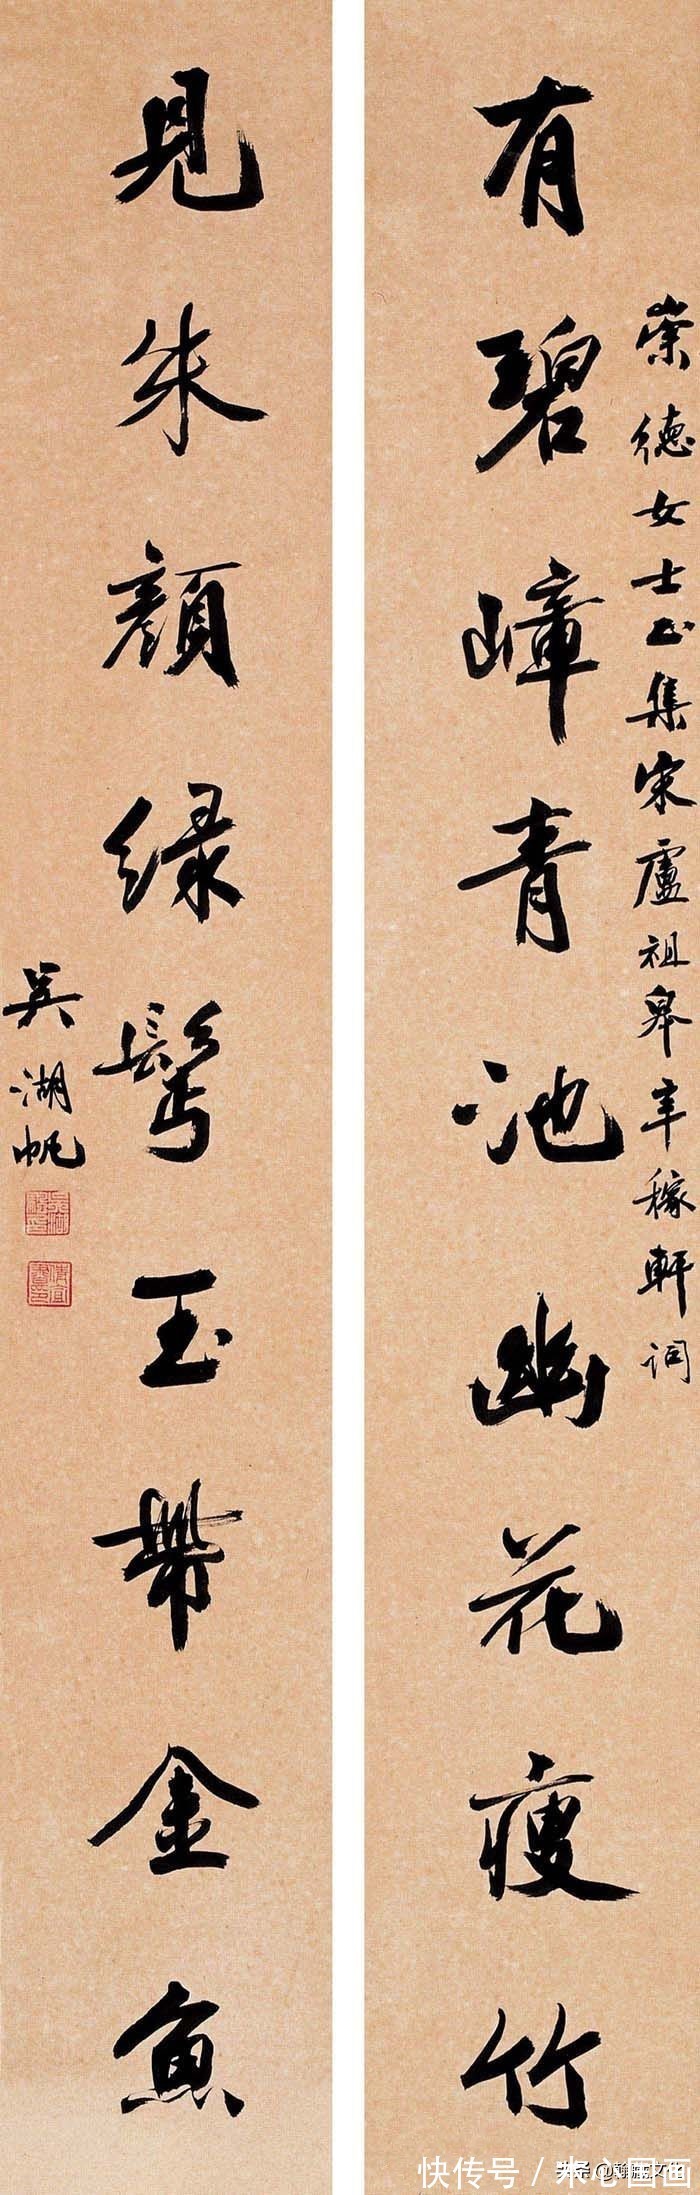 崇德女士正集宋盧祖皋辛稼軒詞
有碧嶂青池幽花瘦竹
見朱顏綠鬢玉帶金魚
吳湖帆
快传号 / 米心国画